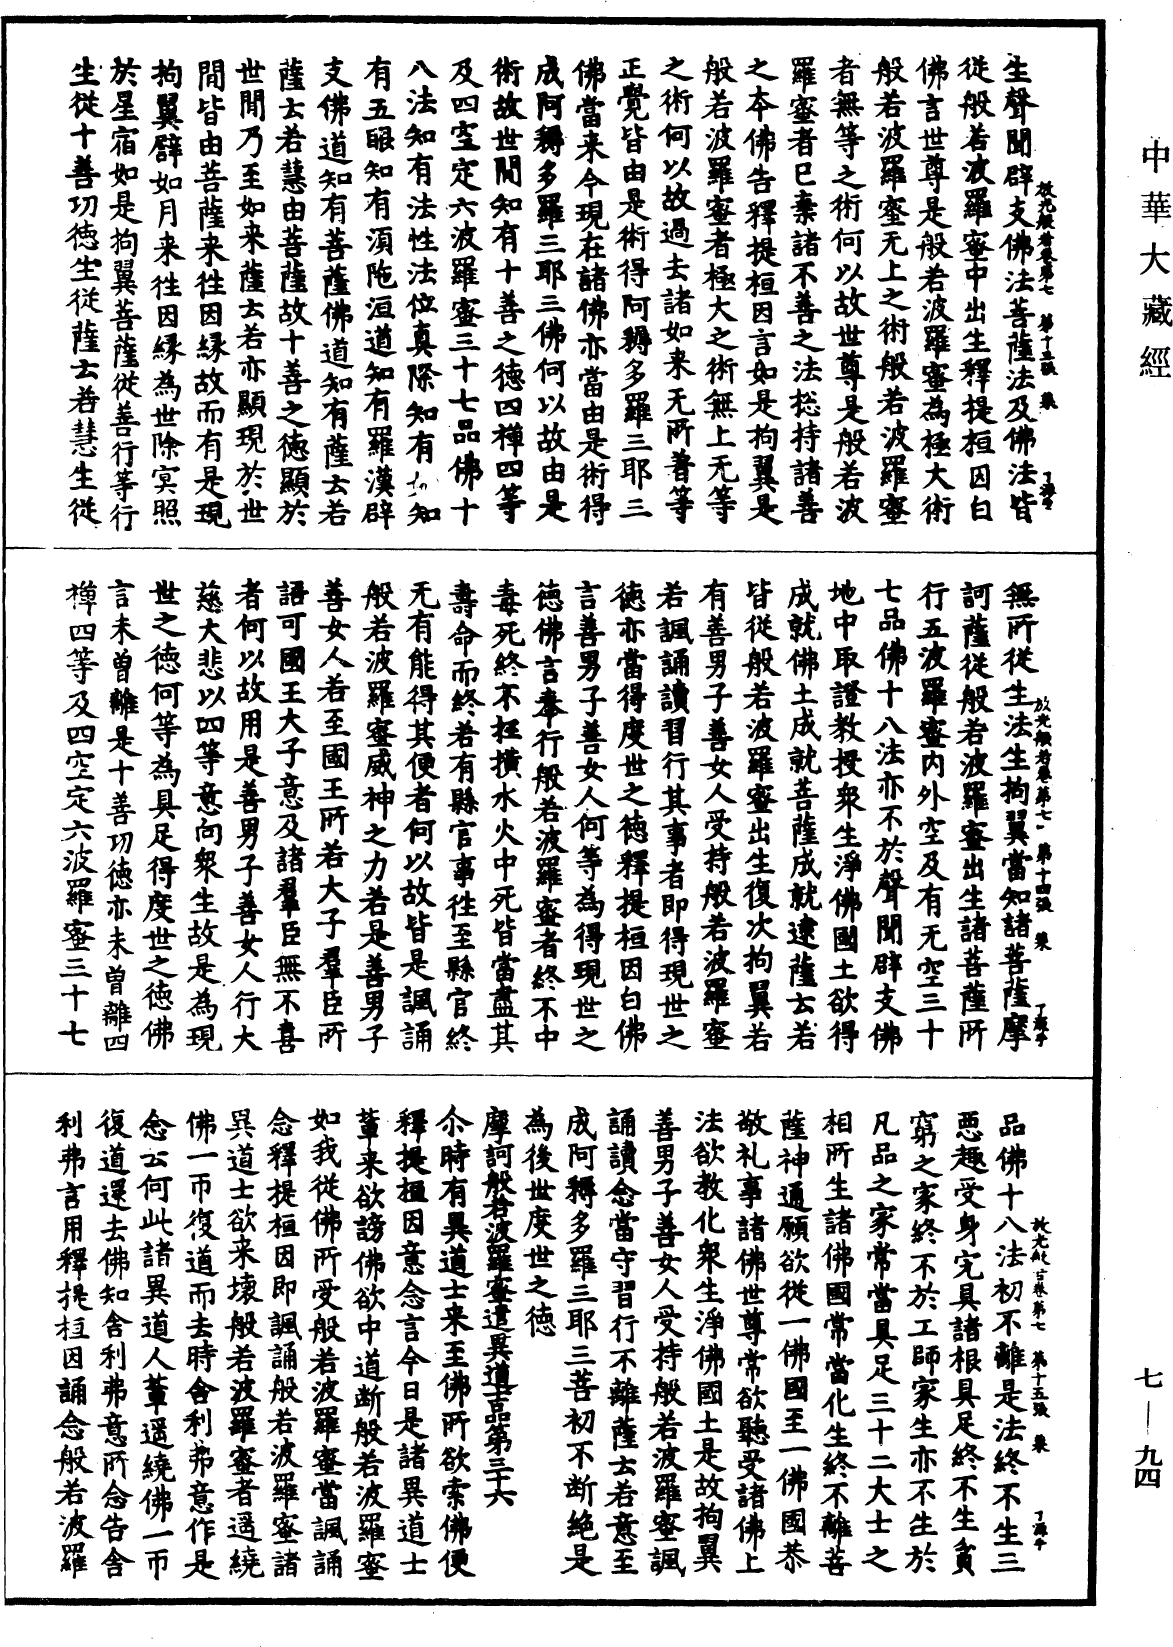 中華大藏經
七—九四
生聲聞辟支佛法菩薩法及佛法皆
從般若波羅蜜中出生釋提桓因白
佛言世尊是般若波羅蜜為極大術
般若波羅蜜无上之術般若波羅蜜
者無等之術何以故世尊是般若波
羅蜜者已棄諸不善之法揔持諸善
之本佛告釋提桓因言如是拘翼是
般若波羅蜜者極大之術無上无等
之術何以故過去諸如来无所著等
正覺皆由是術得阿耨多羅三耶三
佛當来今現在諸佛亦當由是術得
成阿耨多羅三耶三佛何以故由是
術故世間知有十善之德四禅四等
及四空定六波羅蜜三十七品佛十
八法知有法性法位真際知有 知
有五眼知有湏陁洹道知有羅漢辟
支佛道知有菩薩佛道知有薩云若
薩云若慧由菩薩故十善之德顯於
世間乃至如来薩云若亦顯現於世
間皆由菩薩来徃因緣故而有是現
拘翼辟如月来徃因緣為世除冥照
於星宿如是拘翼菩薩從善行等行
生從十善功德生從薩云若慧生從
放光般若卷第七 第十三張
無所從生法生拘翼當知諸菩薩摩
訶薩從般若波羅蜜出生諸菩薩所
行五波羅蜜内外空及有无空三十
七品佛十八法亦不於聲聞辟支佛
地中取證教授衆生淨佛國土欲得
成就佛土成就菩薩成就逮薩云若
皆從般若波羅蜜出生復次拘翼若
有善男子善女人受持般若波羅蜜
若諷誦讀習行其事者即得現世之
德亦當得度世之德釋提桓因白佛
言善男子善女人何等為得現世之
德佛言奉行般若波羅蜜者終不中
毒死終不抂撗水火中死皆當盡其
壽命而終若有縣官事徃至縣官終
无有能得其便者何以故皆是諷誦
般若波羅蜜威神之力若是善男子
善女人若至國王所若大子羣臣所
語可國王大子意及諸羣臣無不喜
者何以故用是善男子善女人行大
慈大悲以四等意向衆生故是為現
世之德何等為具足得度世之德佛
言未曽離是十善功德亦未曽離四
禅四等及四空定六波羅蜜三十七
放光般若卷第七 第十四張
品佛十八法初不離是法終不生三
惡趣受身完具諸根具足終不生貧
窮之家終不於工師家生亦不生於
凡品之家常當具足三十二大士之
相所生諸佛國常當化生終不離菩
薩神通願欲從一佛國至一佛國恭
敬礼事諸佛世尊常欲聽受諸佛上
法欲教化衆生淨佛國土是故拘翼
善男子善女人受持般若波羅蜜諷
誦讀念當守習行不離薩云若意至
成阿耨多羅三耶三菩初不断絶是
為後世度世之德
摩訶般若波羅蜜遣異道士品第三十六
尒時有異道士来至佛所欲索佛便
釋提桓因意念言今日是諸異道士
軰来欲謗佛欲中道断般若波羅蜜
如我從佛所受般若波羅蜜當諷誦
念釋提桓因即諷誦般若波羅蜜諸
異道士欲来壊般若波羅蜜者遥繞
佛一帀復道而去時舎利弗意作是
念云何此諸異道人軰遥繞佛一帀
復道還去佛知舎利弗意所念告舎
利弗言用釋提桓因誦念般若波羅
第十五張